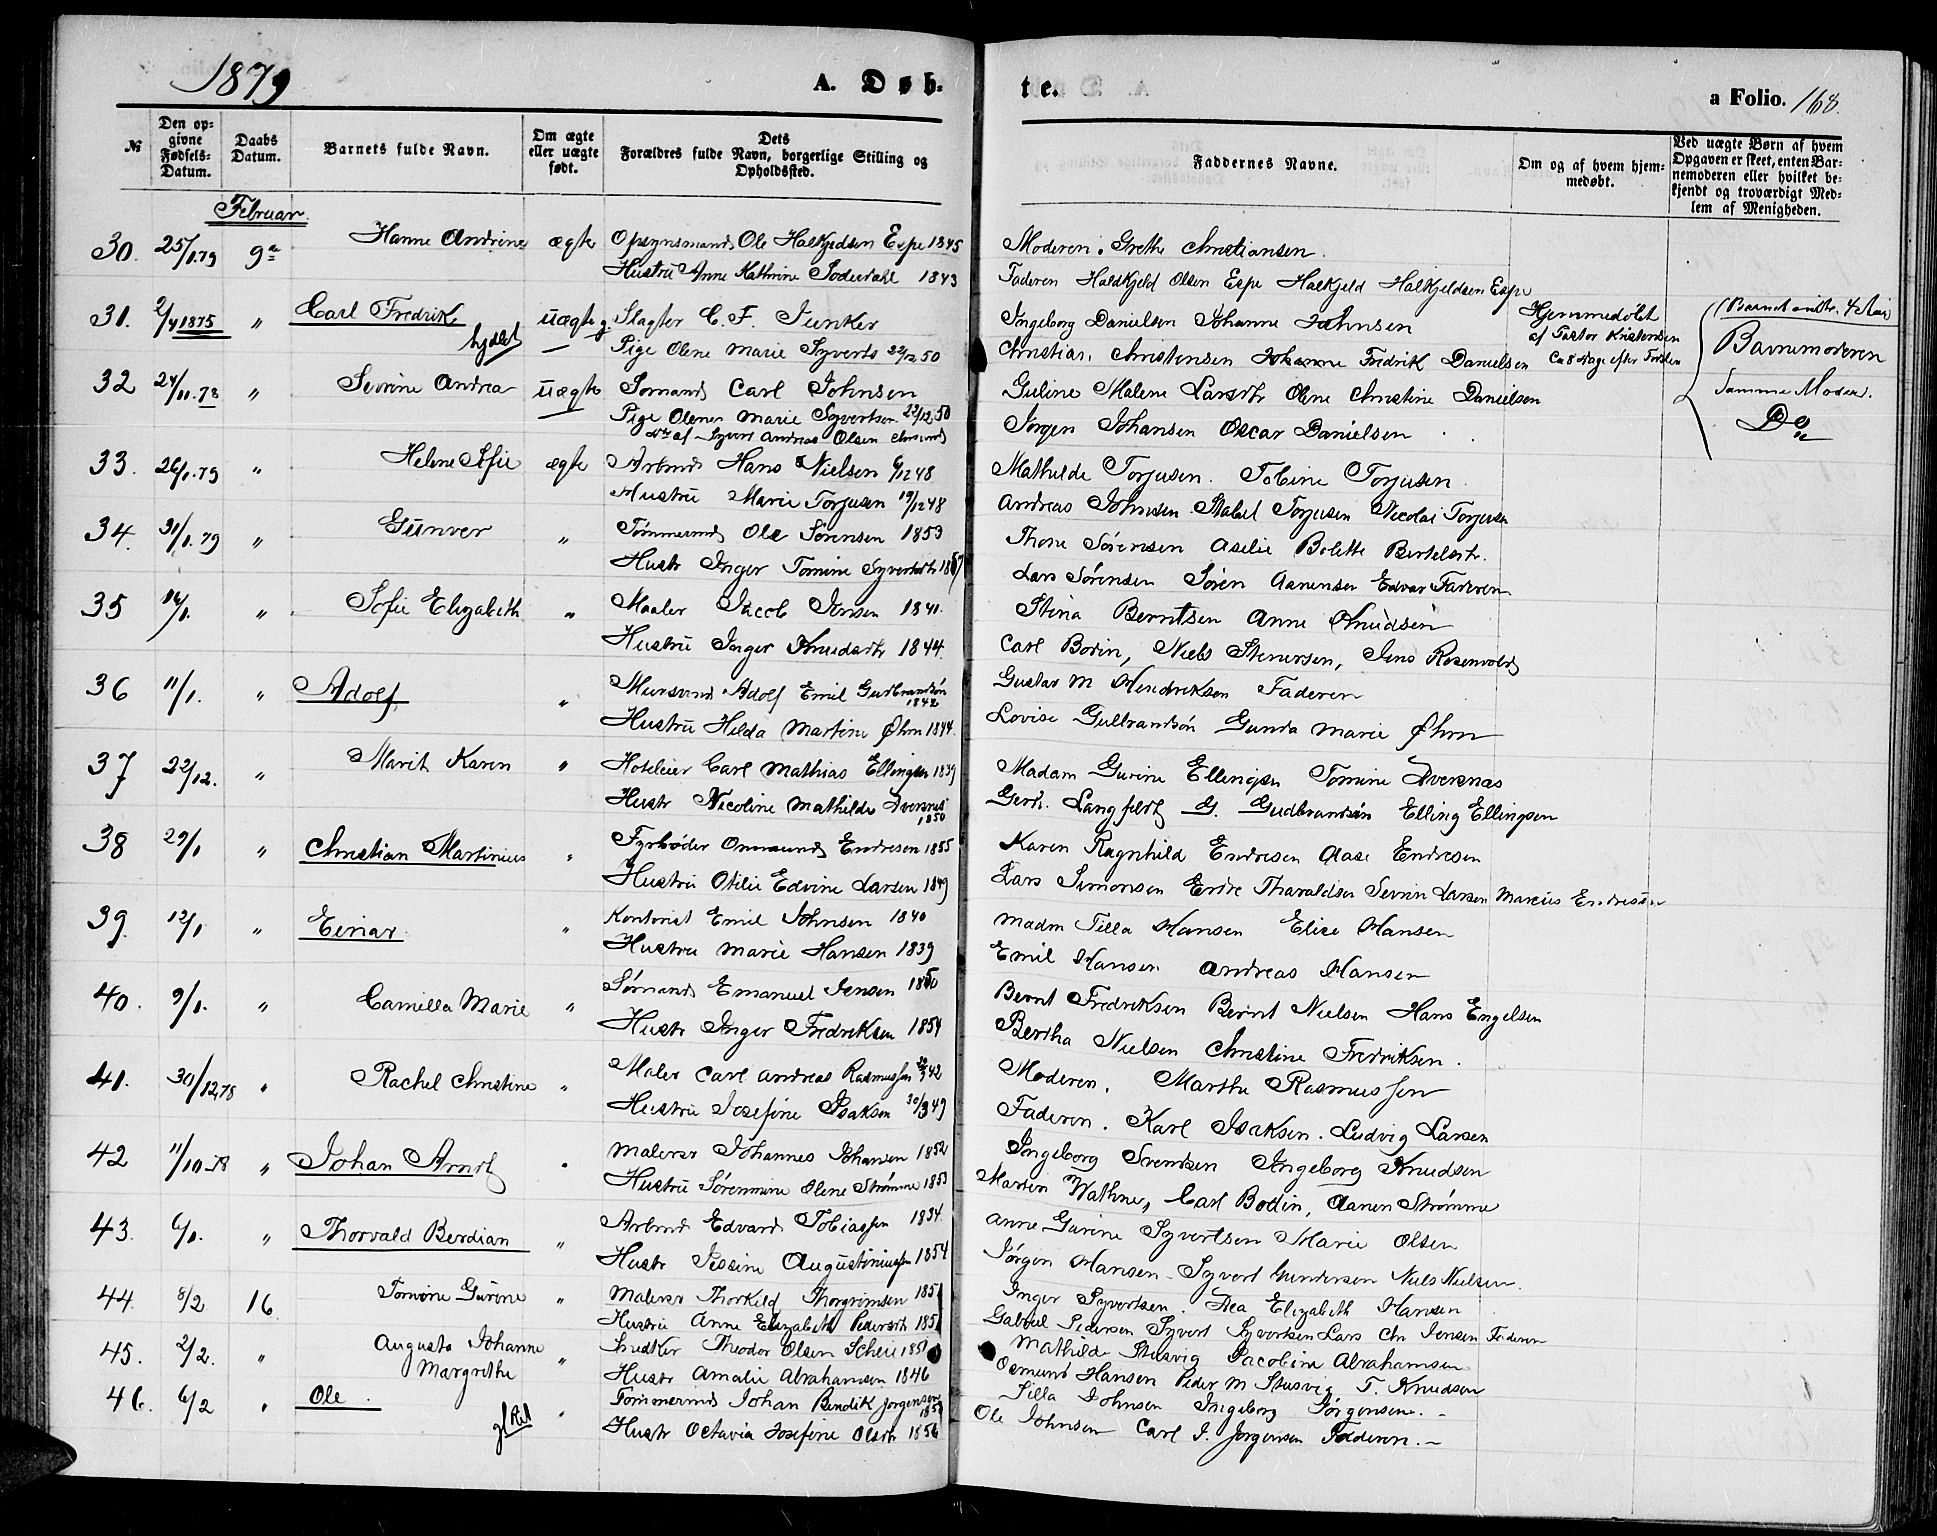 1879
A. Døb-
te.
a Folio. 168.
№
Den op-
givne
Fødsels-
Datum.
Daabs
Datum.
Barnets fulde Navn.
Om ægte
eller uægte
født.
Dets
Forældres fulde Navn, borgerlige Stilling og
Opholdssted.
Faddernes Navne.
Om og af hvem hjem-
medøbt.
Ved uægte Børn af hvem
Opgaven er skeet, enten Bar-
nemoderen eller hvilket be-
kjendt og troværdigt Med-
lem af Menigheden.
Februar.
30. 25/1.79 9de Hanne Andrine ægte Opsynsmand Ole Halkjeldsen Espe 1845 Moderen. Grethe Christiansen.
Hustru Anne Kathrine Soderdahl 1843 Faderen Haldkjeld Olsen Espe Halkjeld Halkjeldsen Espe
31. 2/4 1875 " Carl Fredrik uægte Slagter C. F. Junker Ingeborg Danielsen Johanne Johnsen Hjemmedøbt (Barnet omtr. 4 Aar
Pige Olene Marie Syverts 22/12 50 Christian Christensen Johanne Fredrik Danielsen af Pastor Kristensen Barnemoderen
Ca 8 dage efter Fødslen
32 24/11.78 " Sevrine Andrea uægte Sømand Carl Johnsen Guline Malene Larsdtr Olene Christine Danielsen Samme Moder.
Pige Olene Marie Syvertsen 22/12.50 Jørgen Johansen Oscar Danielsen Do
Dtr af Syvert Andreas Olsen
33. 26/1.79 " Helene Sofie ægte Arbmd Hans Nielsen 6/12 48 Mathilde Torjusen. Tobine Torjusen
Hustru Marie Torjusen 19/12 48 Andreas Johnsen Stabel Torjusen Nicolai Torjusen
34. 31/1.79 " Gunver " Tømmermd Ole Sørensen 1853 Thone Sørensen Aselie Bolette Bertelsdtr.
Hustr Inger Tomine Syvertsdtr 1857 Lars Sørensen Søren Aanensen Edvar Faderen
35 16/1. " Sofie Elizabeth " Maaler Jacob Jensen 1841. Stina Berntsen Anne Knudsen
Hustru Inger Knudsdtr 1844. Carl Bodin, Niels Stenersen, Jens Rosenvold
36 11/1. " Adolf " Muursvend Adolf Emil Gudbrandsøn 1842 Gustav M Hendriksen Faderen
Hustru Hilda Martine Øhrn 1844. Lovise Gulbrandsøn Gunda Marie Øhrn
37 22/12. " Marit Karen " Hoteleier Carl Mathias Ellingsen 1839 Madam Gurine Ellingsen Tomine Aversnas
Hustr Nicoline Mathilde Aversnes 1850 Gerh. Langfeldt G. Gudbrandsøn Elling Ellingsen
38 29/1 " Christian Martinius " Fyrbøder Ommund Endresen 1855 Karen Ragnhild Endresen Aase Endresen
Hustru Otilie Edvine Larsen 1849 Lars Simonsen Endre Tharaldsen Sevrin Larsen Marcius Endresen
39. 12/1 " Einar " Kontorist Emil Johnsen 1840 Madm Tilla Hansen Elise Hansen
Hustru Marie Hansen 1839 Emil Hansen Andreas Hansen
40. 9/1. " Camilla Marie " Sømand Emanuel Jensen 1850 Bernt Fredriksen Bernt Nielsen Hans Engelsen
Hustr Inger Fredriksen 1854 Bertha Nielsen Christine Fredriksen.
41. 30/12.78 " Rachel Christine " Maler Carl Andreas Rasmussen 42 Moderen. Marthe Rasmussen
Hustru Josefine Isaksen 30/3 49 Faderen. Karl Isaksen. Ludvig Larsen
42 11/10.78 " Johan Arndt " Malersv Johannes Johansen 1852 Ingeborg Svendsen Ingeborg Knudsen
Hustru Sørenmine Olene Strømme 1853 Martin Wathne, Carl Bodin, Aanen Strømme
43. 6/1. " Thorvald Berdian " Arbmd Edvard Tobiassen 1834. Anne Gurine Syvertsen Marie Olsen
Hustr Jessine Augustiniussen 1854 Jørgen Hansen Syvert Gundersen Niels Nielsen.
44. 8/2 16 Tomine Gurine " Malersv Thorkild Thorgrimsen 1851 Inger Syvertsen. Dea Elizabeth Hansen
Hustru Anne Elizabeth Pedersdtr 1851 Gabriel Pedersen Syvert Syvertsen Lars Chr Jensen Faderen
45. 2/2. " Augusta Johanne " Snedker Theodor Olsen Scheie 1851 Mathilde Stusvig Jacobine Abrahamsen
Margrethe Hustr Amalie Abrahamsen 1846 Osmund Hansen Peder M Stusvig T. Knudsen
46. 6/2 " Ole. " Tømmermd Johan Bendik Jørgensen Silla Johnsen Ingeborg Jørgensen.
Hustr Octavia Josefine Olsdtr 1856 Ole Johnsen Carl J. Jørgensen Fadderen.